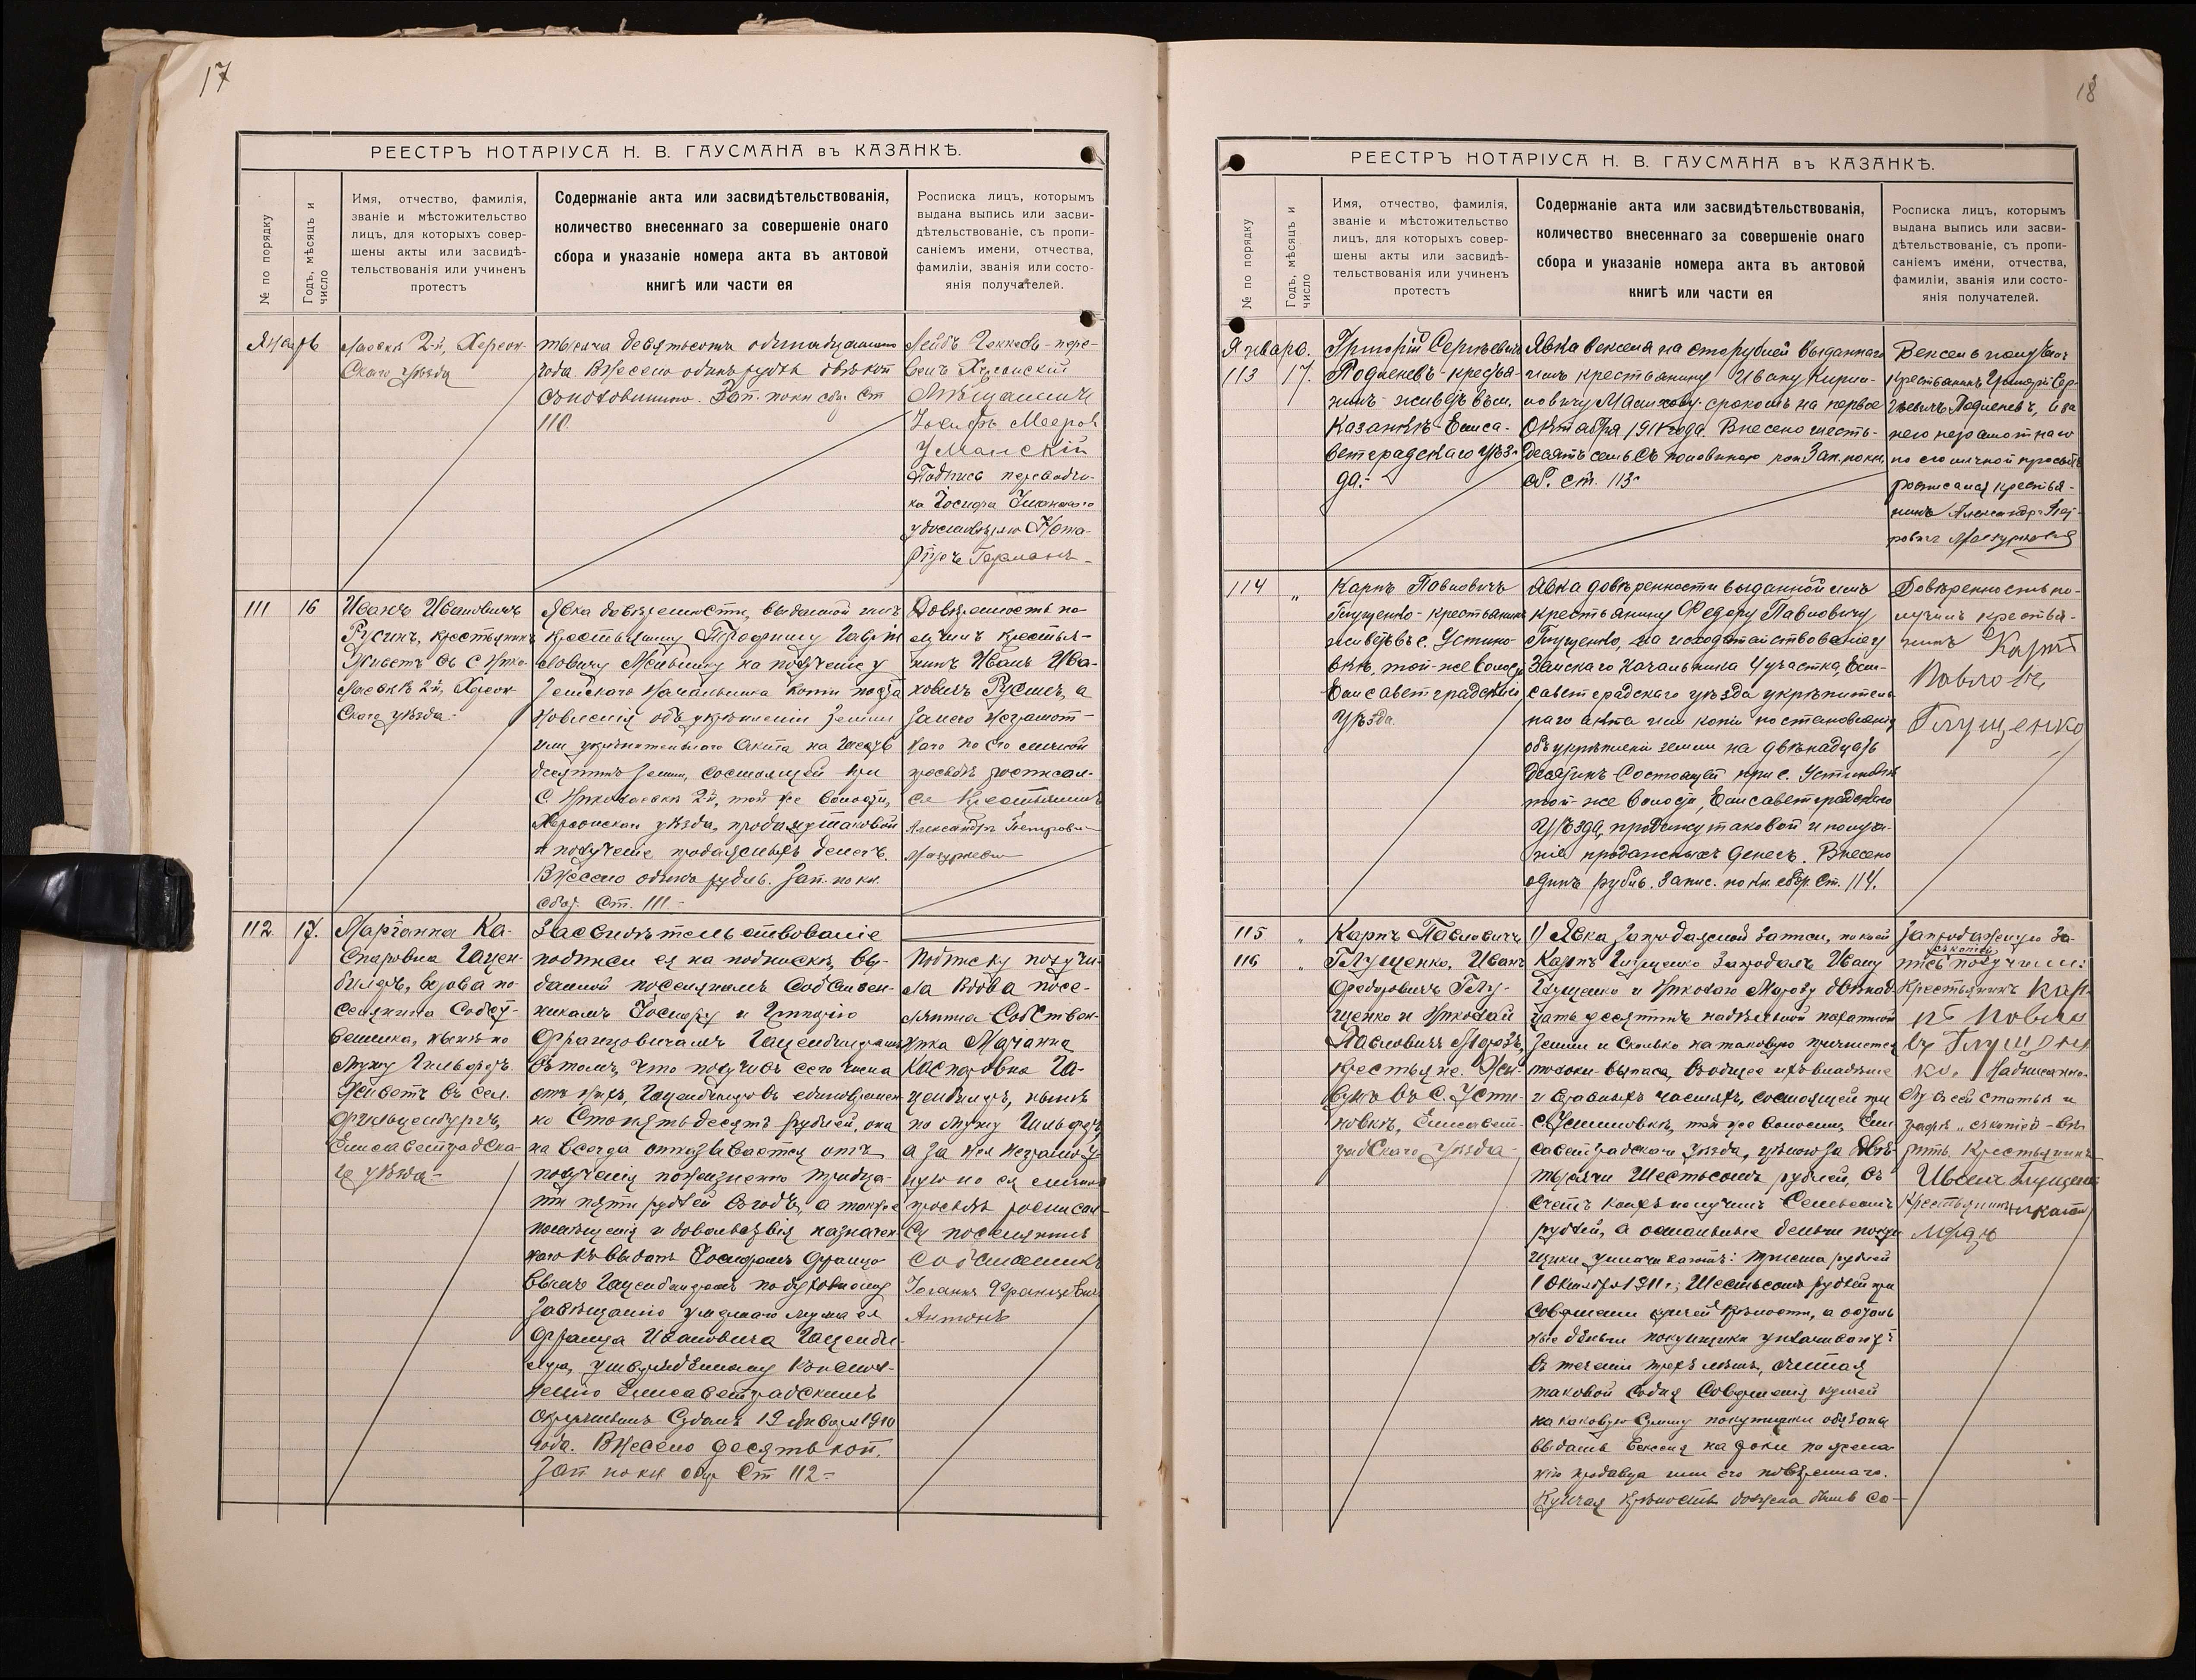 17
РЕЕСТРЪ НОТАРІУСА Н. В. ГАУСМАНА въ КАЗАНКѢ.
№ по порядку
Годъ, мѣсяцъ и
число
Имя, отчество, фамилія,
званіе и мѣстожительство
лицъ, для которыхъ совер-
шены акты или засвидѣ-
тельствованія или учиненъ
протестъ
Содержаніе акта или засвидѣтельствованія,
количество внесеннаго за совершеніе онаго
сбора и указаніе номера акта въ актовой
книгѣ или части ея
Росписка лицъ, которымъ
выдана выпись или засви-
дѣтельствованіе, съ пропи-
саніемъ имени, отчества,
фамиліи, званія или состо-
янія получателей.
Январь
2-й, Херсон-
скаго уѣзда
тысяча девятьсотъ одинадцатаго
года. Внесено одинъ рубль двѣ коп
съ половиною. Зап. по кн сбр. Ст
110
Лейбъ -пере-
велъ Херсонскій
Мѣщанинъ
Іосифъ Мееровъ
Уманскій
Подпись переводчи-
ка Іосифа Уманскаго
удостовѣряю Нота-
ріусъ Гаусманъ
111
16
Иванъ Ивановичъ
Русинъ, крестьянинъ
Живетъ въ с Нико-
лаевкѣ 2-й, Херсон-
скаго уѣзда.-
Явка довѣренности, выданной имъ
крестьянину Трофиму Гаврі
ловичу на полученіе у
Земскаго Начальника копіи поста
новленія объ укрѣпленіи земли
или укрѣпительнаго акта на шесть
десятинъ земли, состоящей при
с Николаевкѣ 2-й, той же волости,
Херсонскаго уѣзда, продажу таковой
и полученіе продажныхъ денегъ.
Внесено одинъ рубль. Зап. по кн.
сбор. Ст. 111.-
Довѣренность по-
лучилъ крестья-
нинъ Иванъ Ива-
новичъ Русинъ, а
за него неграмот-
наго по его личной
просьбѣ росписал-
ся крестьянинъ
Александръ Петрович
112.
17.
Маріанна Ка-
спаровна Гацен-
биллеръ, вдова по-
селянина собст-
венника, нынѣ по
мужу Гильферъ.
Живетъ въ сел.
Елисаветградска-
го уѣзда-
Засвидѣтельствованіе
подписи ея на подпискѣ, вы-
данной поселянамъ собствен-
никамъ Іосифу и Игнатію
Францовичамъ Гаценбиллерамъ
въ томъ, что получивъ сего числа
отъ нихъ, Гаценбиллеровъ единовремен
но сто пятьдесятъ рублей, она
на всегда отказывается отъ
полученія пожизненно тридца-
ти пяти рублей въ годъ, а также
помѣщенія и довольствія назначен
наго къ выдачѣ Іосифомъ Францо
вичемъ Гаценбиллеромъ по духовному
завѣщанію умершаго мужа ея
Франца Ивановича Гаценби-
лера, утвержденному къ испол-
ненію Елисаветградскимъ
Окружнымъ Судомъ 19 Января 1910
года. Внесено десять коп.
Зап по кн сбр Ст 112-
Подписку получи-
ла вдова посе-
лянина Собствен-
ника Маріанна
Каспаровна Га-
ценбиллеръ, нынѣ
по мужу Гильферъ,
а за нея неграмот-
ную по ея личной
просьбѣ росписал-
ся поселянинъ
собственникъ
Іоганнъ Францовичъ
Антонъ
18
РЕЕСТРЪ НОТАРІУСА Н. В. ГАУСМАНА въ КАЗАНКѢ.
№ по порядку
Годъ, мѣсяцъ и
число
Имя, отчество, фамилія,
званіе и мѣстожительство
лицъ, для которыхъ совер-
шены акты или засвидѣ-
тельствованія или учиненъ
протестъ
Содержаніе акта или засвидѣтельствованія,
количество внесеннаго за совершеніе онаго
сбора и указаніе номера акта въ актовой
книгѣ или части ея
Росписка лицъ, которымъ
выдана выпись или засви-
дѣтельствованіе, съ пропи-
саніемъ имени, отчества,
фамиліи, званія или состо-
янія получателей.
Января.
113
17.
Григорій Сергѣевичъ
крестья-
нинъ живетъ въ м.
Казанкѣ Елиса-
ветградскаго уѣз-
да.-
Явка векселя на сто рублей выданнаго
имъ крестьянину Ивану Кирил-
ловичу срокомъ на первое
Октября 1911 года. Внесено шесть-
десятъ семь съ половиною коп Зап. по кн.
сб. ст. 113.
Вексель получилъ
крестьянинъ Григорій Сер-
гѣевичъ а за
него неграмотнаго
по его личной просьбѣ
росписался крестья-
нинъ Александръ Пет-
ровичъ
114
"
Карпъ Павловичъ
Глущенко-крестьянинъ
живетъ въ с. Устино-
вкѣ, той-же волости
Елисаветградскій
уѣзда.
Явка довѣренности выданной имъ
крестьянину Федору Павловичу
Глущенко, на исходатайствованіе у
Земскаго Начальника 4 участка, Ели-
саветградскаго уѣзда укрѣпитель
наго акта или копіи постановленія
объ укрѣпленіи земли на двѣнадцать
десятинъ состоящей при с. Устиновкѣ
той-же волости, Елисаветградскаго
уѣзда, продажу таковой и получе-
ніе продажныхъ денегъ. Внесено
одинъ рубль. Запис. по кн. сбор. Ст. 114.
Довѣренность по-
лучилъ крестья-
нинъ Карпъ
Павловъ
Глущенко
115
"
116
"
Карпъ Павловичъ
Глущенко, Иванъ
Федоровичъ Глу-
щенко и Николай
Павловичъ Морозъ,
крестьяне. Жи-
вутъ въ с. Усти-
новкѣ, Елисавет-
градскаго уѣзда-
1) Явка запродажной записи, по коей
Карпъ Глущенко запродалъ Ивану
Глущенко и Николаю Морозу двѣнад-
цать десятинъ надѣльной пахатной
земли и сколько на таковую причитется
толоки-выпаса, въ общее ихъ владѣніе
и въ равныхъ частяхъ, состоящей при
с Устиновкѣ, той же волости, Ели
саветградскаго уѣзда, цѣною за двѣ
тысячи шестьсотъ рублей, въ
счетъ коихъ получилъ семьсотъ
рублей, а остальныя деньги покуп
щики уплачиваютъ: триста рублей
1 Октября 1911 г.; шестьсотъ рублей при
совершеніи купчей крѣпости, а осталь
ныя деньги покупщики уплачиваютъ
въ теченіи трехъ лѣтъ, считая
таковой со дня совершенія купчей
на каковую сумму покупщики обязаны
выдать векселя на сроки по жела-
нію продавца или его повѣреннаго.
Купчая крѣпость должна быть со-
Запродажную за-
съ копіей
пись получили:
Крестьянинъ Кар-
пъ Павлов
въ Глущен
ко. Надписанно-
му въ сей статьѣ и
графѣ „съ копіей"-вѣ-
рить. Крестьянинъ
Иванъ Глущенко
Крестьянинъ
Морозъ